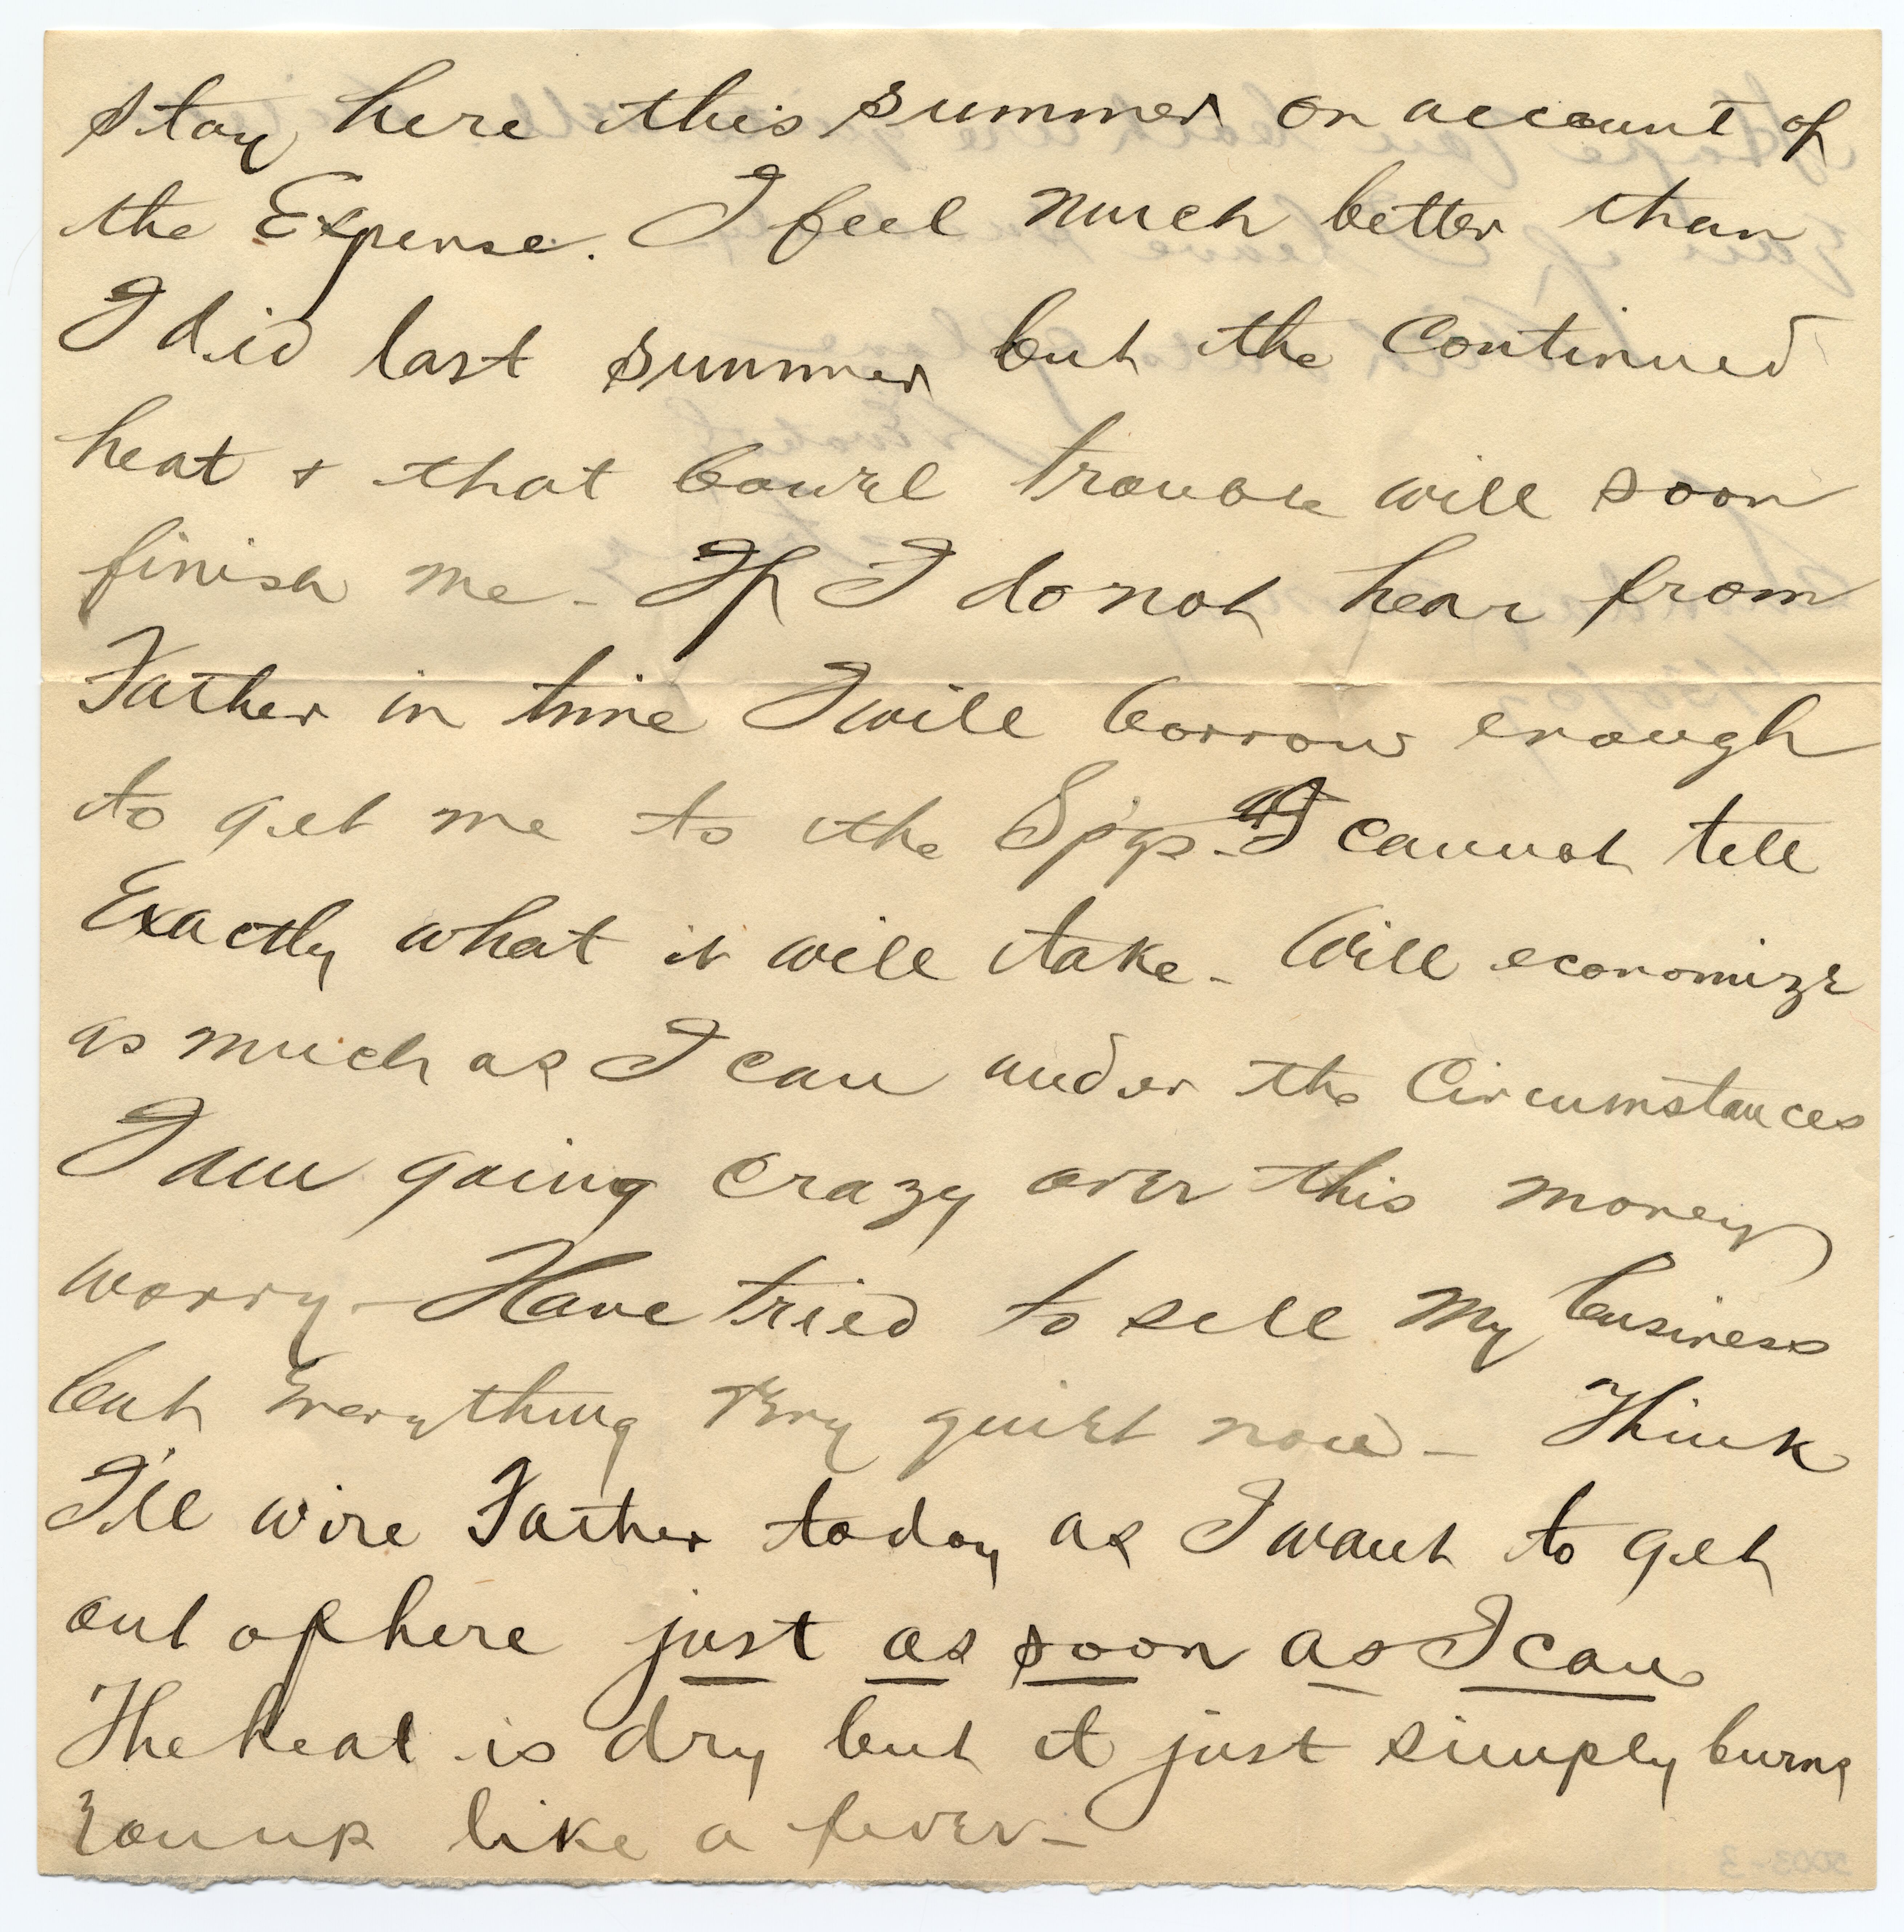 stay here this summer on account of
the Expense. I feel much better than
I did last summer but the Continued
heat & that bowel trouble will soon
finish me - If I do not hear from
Father in time I will borrow enough
to get me to the Spgs - I cannot tell
Exactly what it will take - Will economize
as much as I can under the Circumstances
I am going crazy over this money
worry - Have tried to sell my business
but Everything very quiet now - Think
I'll wire Father today as I want to get
out of here just as soon as I can
The heat is dry but it just simply burns
you up like a fever -